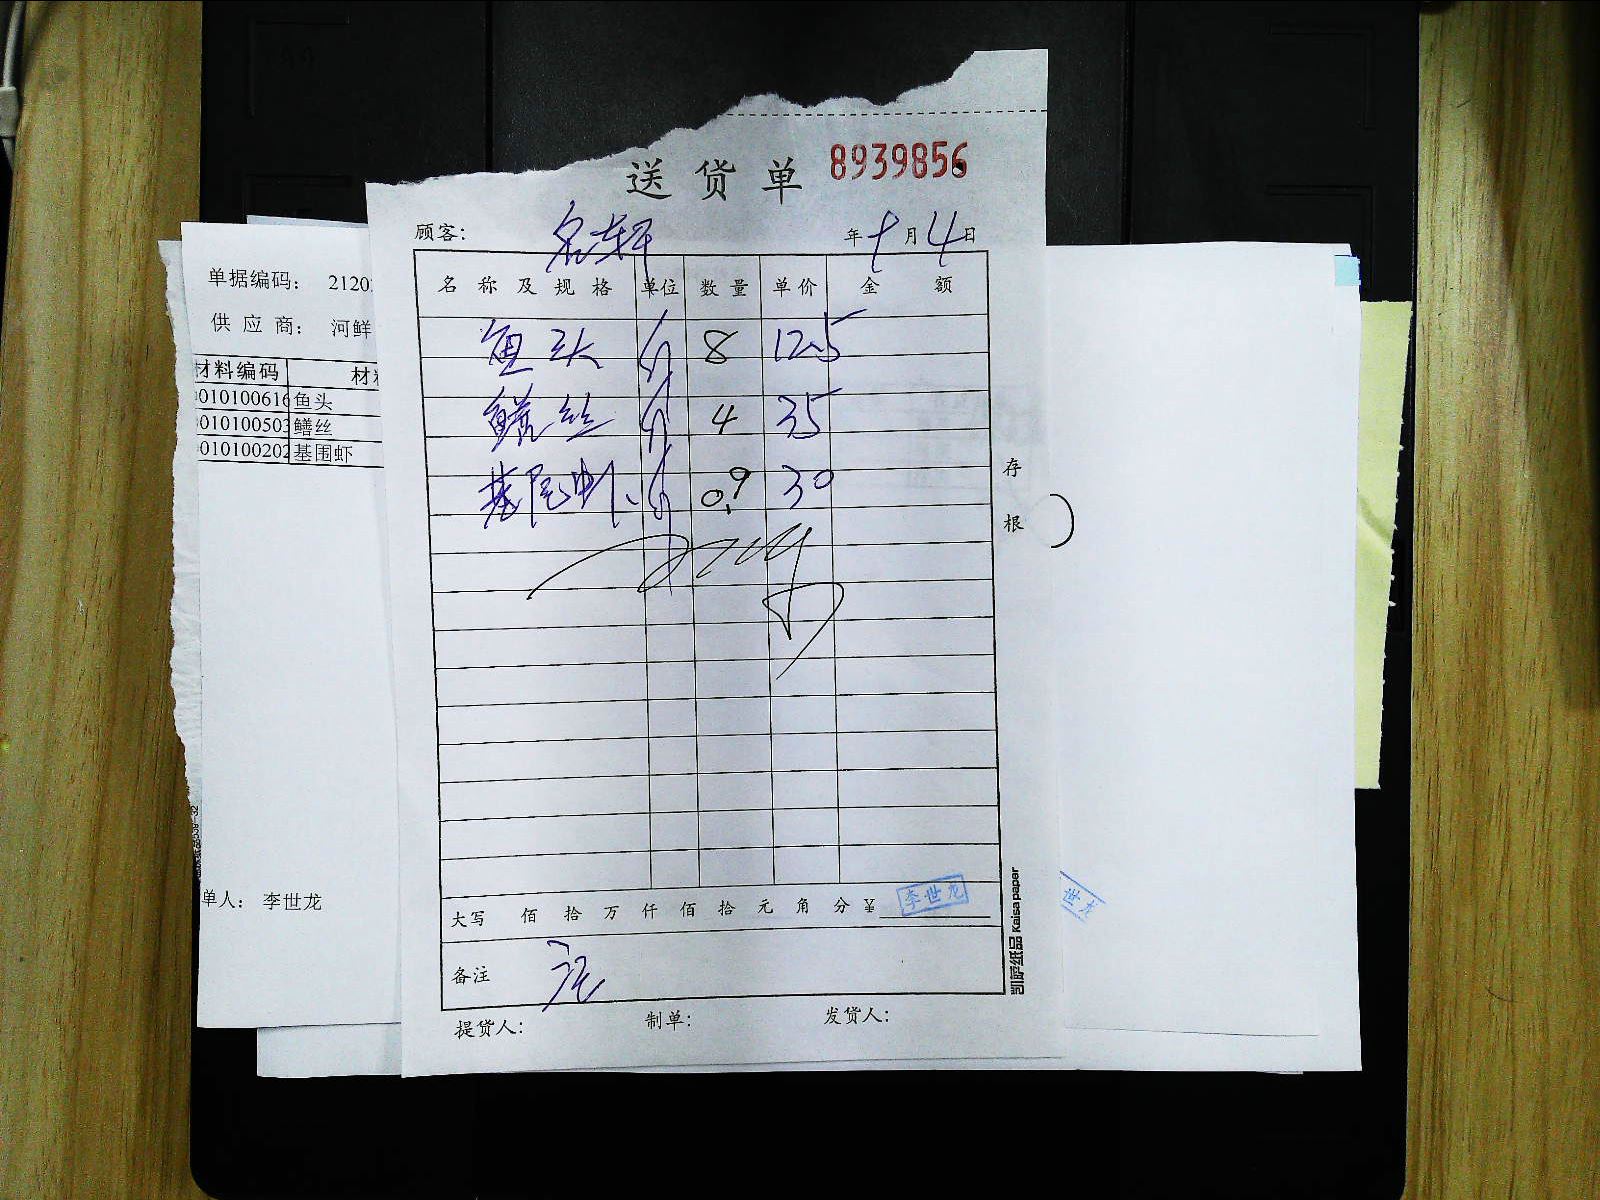 送 货 单 8939856
顾客： 名轩 年 9 月 4 日
名 称 及 规 格 单位 数 量 单价 金 额
鱼头 斤 8 12.5
鳝丝 斤 4 35
基围虾 斤 0.9 30
大写 佰 拾 万 仟 佰 拾 元 角 分 ¥ 李世龙
备注
提货人： 制单： 发货人：
存根
凯萨纸品 Kaisa paper
单据编码： 2120
供 应 商： 河鲜
材料编码
010100616 鱼头
010100503 鳝丝
010100202 基围虾
单人： 李世龙
世龙